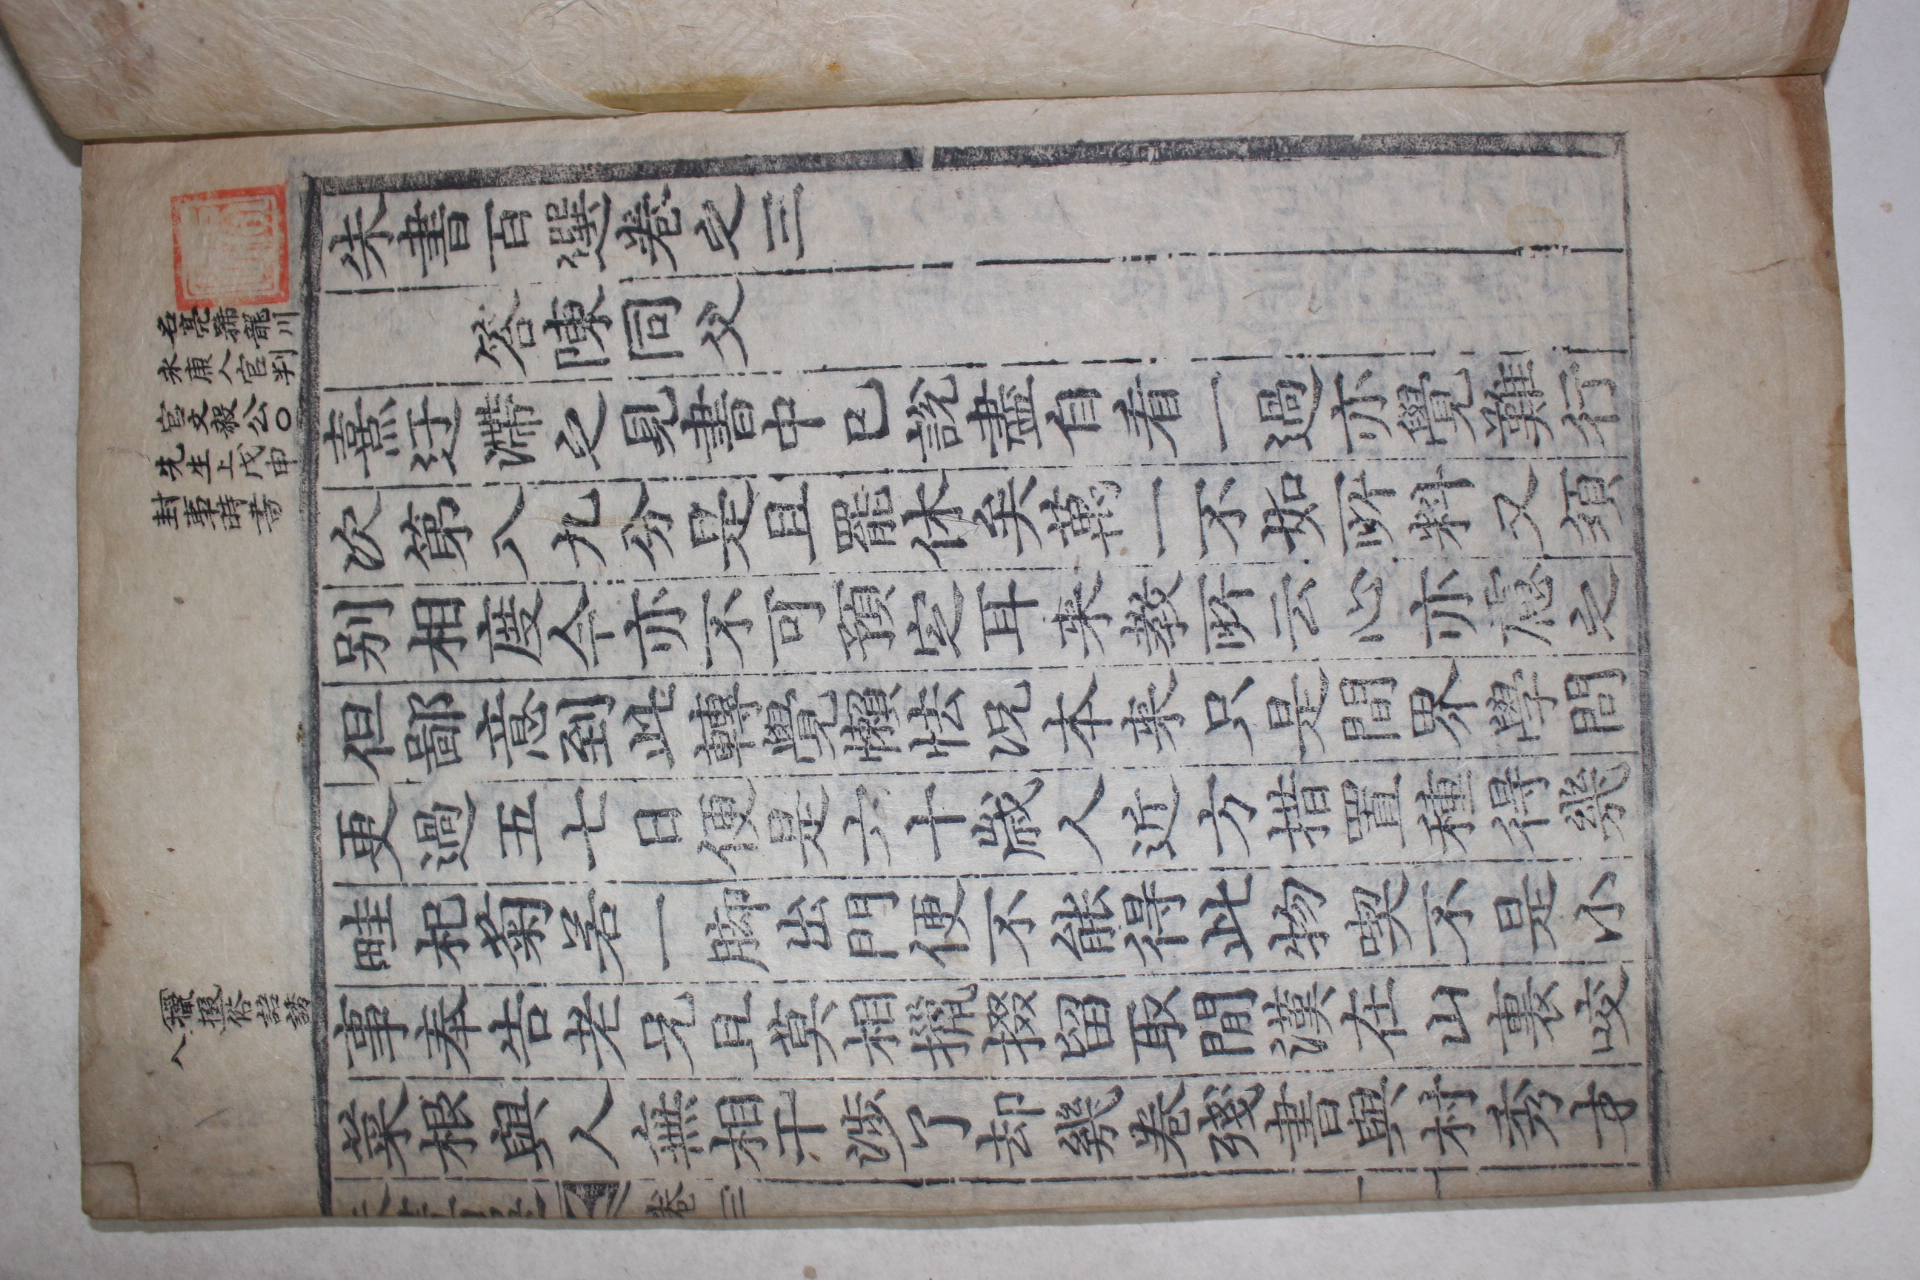 朱書百選卷之三
答陳同父
熹迂滯之見書中已說盡自看一過亦覺難行
次第八九分是且罷休矣萬一不如所料又須
別相度今亦不可預定耳来教所云心亦慮之
但鄙意到此轉覺懶怯况本来只是間界學問
更過五七日便是六十歲人近方措置種得幾
畦杞菊若一脚出門便不能得此物喫不是小
事奉告老兄且莫相攛掇留取閒漢在山裏咬
菜根與人無相干涉了却幾卷殘書與村秀才
卷三
名亮號龍川
永康人官判
官文毅公○
先生上戊申
封事時書
攛掇俗語誘
人